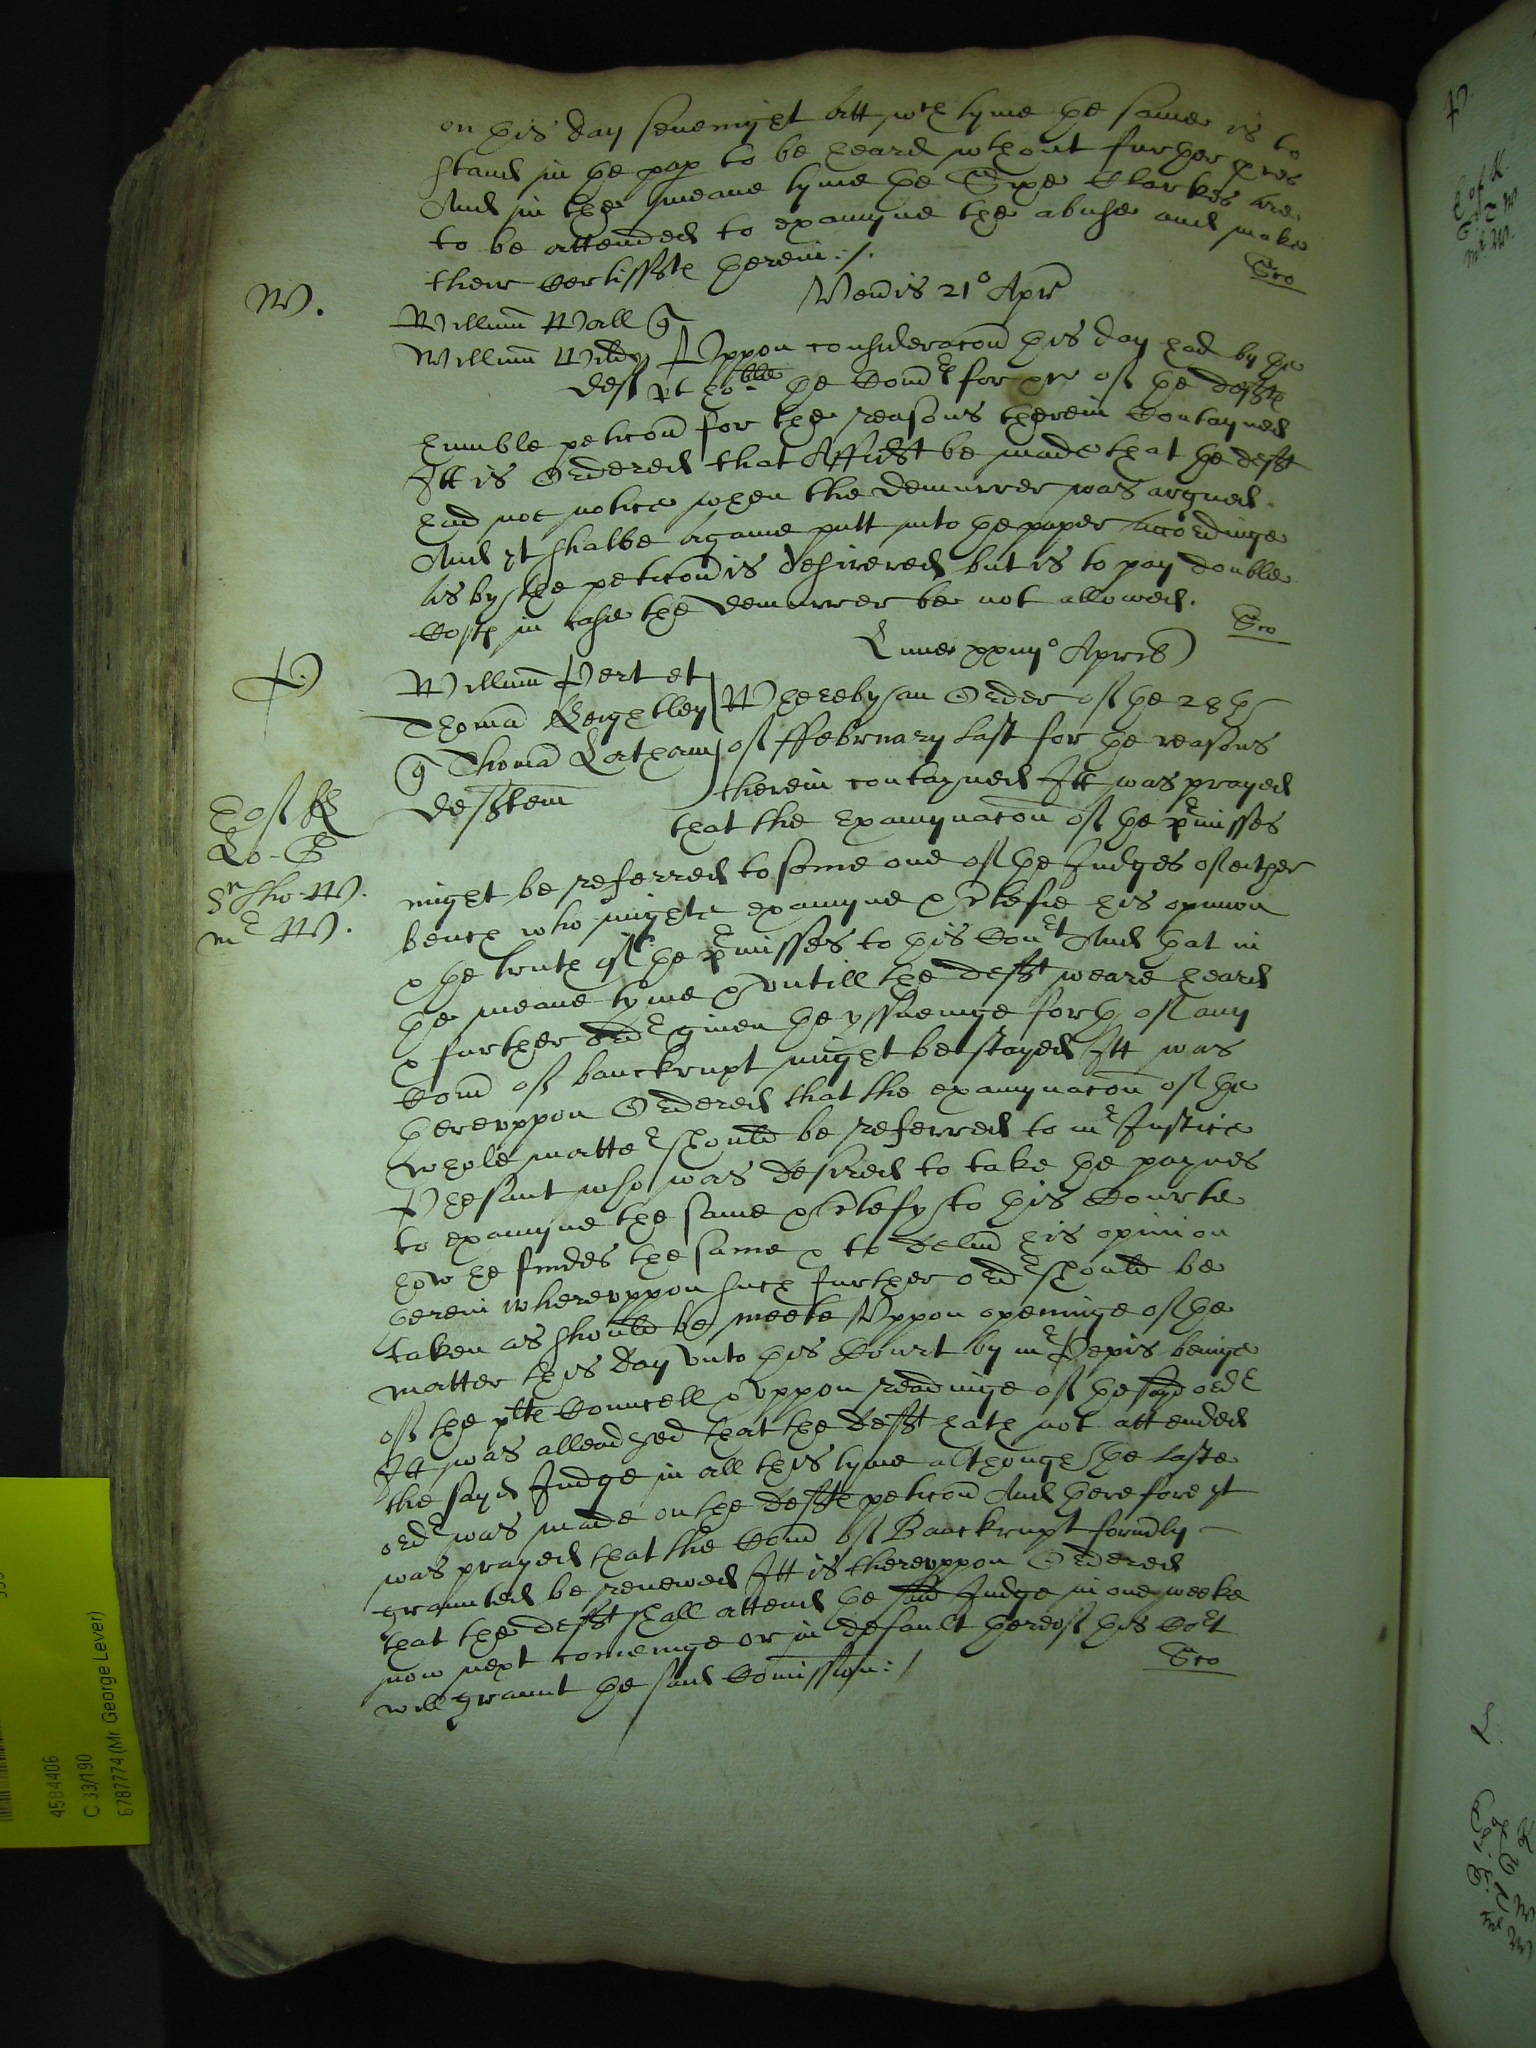 on this day sevenight att wch tyme the same is to
stand in the pap to be heard wthout further
And in the meane tyme the Sixe Clarkes are
to be attended to examyne the abuse and make
their Certifficte herein :/.
Veneris 21o Apr
W.
Willimũ Wall q
Willimũ Uppon consideracon this day had by the
def rt ho:ble the Comrs for of the defts
humble peticon for the reasons therein Contayned
Itt is Ordered that Affidt be made that the deft
had not notice when the demurrer was argued
And yt shalbe againe putt into the paper accordinge
as by the peticon is desirered but is to pay double
Costs in case the demurrer be not allowed.
Lune xxiiijo Aprlis
P
Willimũ Pert et
Thomã Keightley Whereby an Order of the 28th
q Thomã Latham of ffebruary last for the reasons
deften therein contayned Itt was prayed
that the Examynacon of the prmisses
E of K
Lo. G
Sr Tho: W.
mr W.
might be referred to some one of the Judges of either
bench who might examyne & certefie his opinion
& the truth of the prmisses to this Court And that in
the meane tyme & untill the deft weare heard
& further ordr given the yssueinge forth of any
Com of banckrupt might be stayed Itt was
thereuppon Ordered that the examynacon of the
whole matter should be referred to mr Justice
Phesant who was desired to take the paynes
to examyne the same & certefy to this Courte
how he findes the same & to delivr his opinion
therein whereuppon such further ordr should be
taken as should be meete Uppon openinge of the
matter this day unto this Court by mr Pepis beinge
of the plts Councell & uppon readinge of the sayd ordr
Itt was alleadged that the deft hath not attended
the sayd Judge in all this tyme although the laste
ordr was made on the defts peticon And therefore yt
was prayed that the Com of Banckrupt formerly
graunted be renewed Itt is thereuppon Ordered
that the deft shall attend the said Judge in one weeke
now next comeinge or in default thereof this Cort
will graunt the said Comission :/
4584406
C 33/190
6787774 (Mr. George Lever)